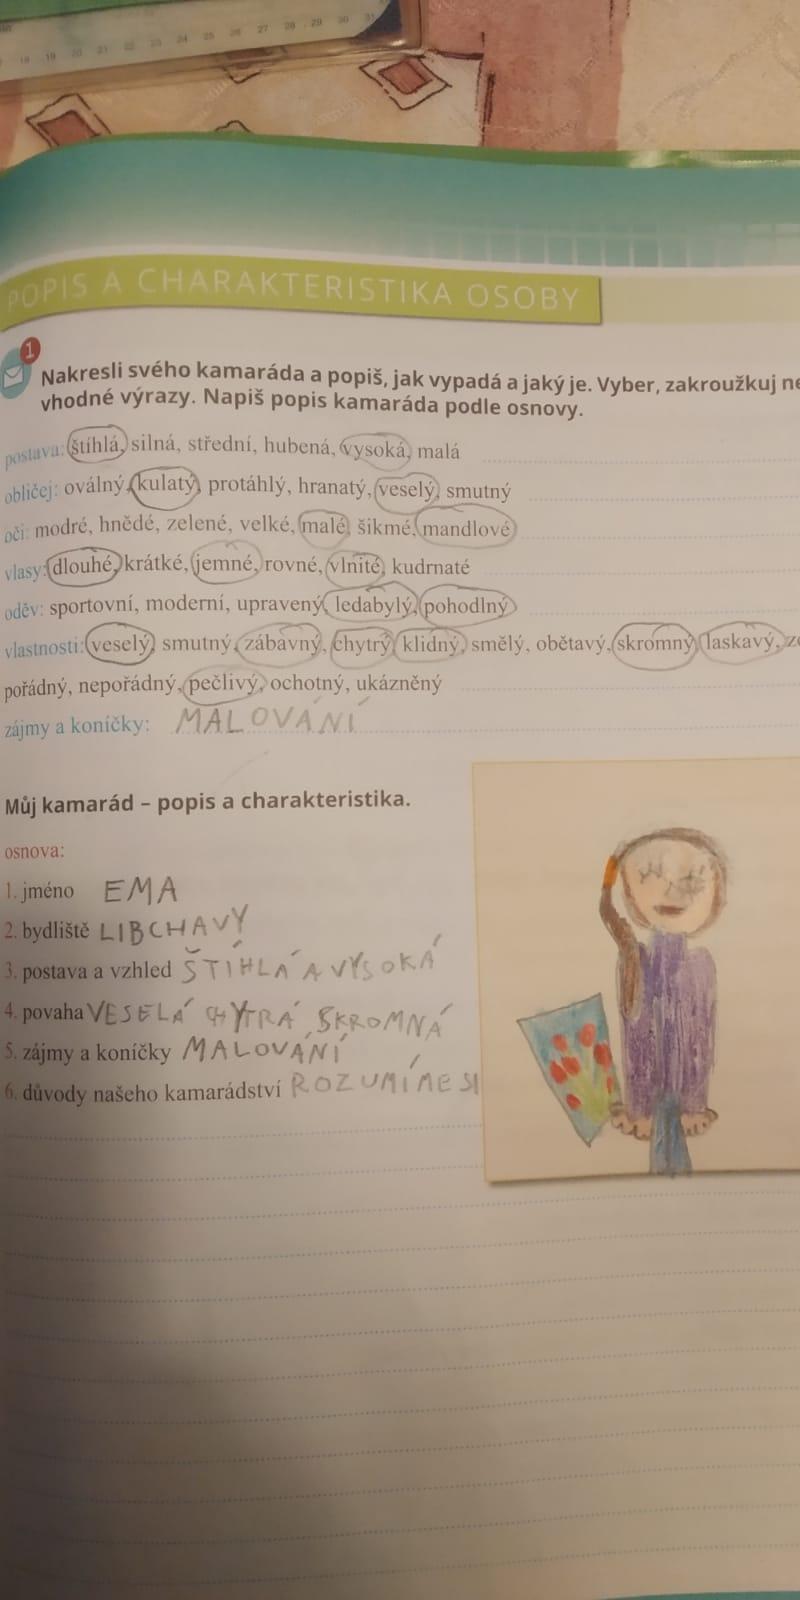 18 19 20 21 22 23 24 25 26 27 28 29 30 31
POPIS A CHARAKTERISTIKA OSOBY
1
Nakresli svého kamaráda a popiš, jak vypadá a jaký je. Vyber, zakroužkuj ne
vhodné výrazy. Napiš popis kamaráda podle osnovy.
postava: štíhlá, silná, střední, hubená, vysoká, malá
obličej: oválný, kulatý, protáhlý, hranatý, veselý, smutný
oči: modré, hnědé, zelené, velké, malé, šikmé, mandlové
vlasy: dlouhé, krátké, jemné, rovné, vlnité, kudrnaté
oděv: sportovní, moderní, upravený, ledabylý, pohodlný
vlastnosti: veselý, smutný, zábavný, chytrý, klidný, smělý, obětavý, skromný, laskavý,
pořádný, nepořádný, pečlivý, ochotný, ukázněný
zájmy a koníčky: MALOVÁNÍ
Můj kamarád – popis a charakteristika.
osnova:
1. jméno EMA
2. bydliště LIBCHAVY
3. postava a vzhled ŠTÍHLÁ A VYSOKÁ
4. povaha VESELÁ CHYTRÁ SKROMNÁ
5. zájmy a koníčky MALOVÁNÍ
6. důvody našeho kamarádství ROZUMÍME SI